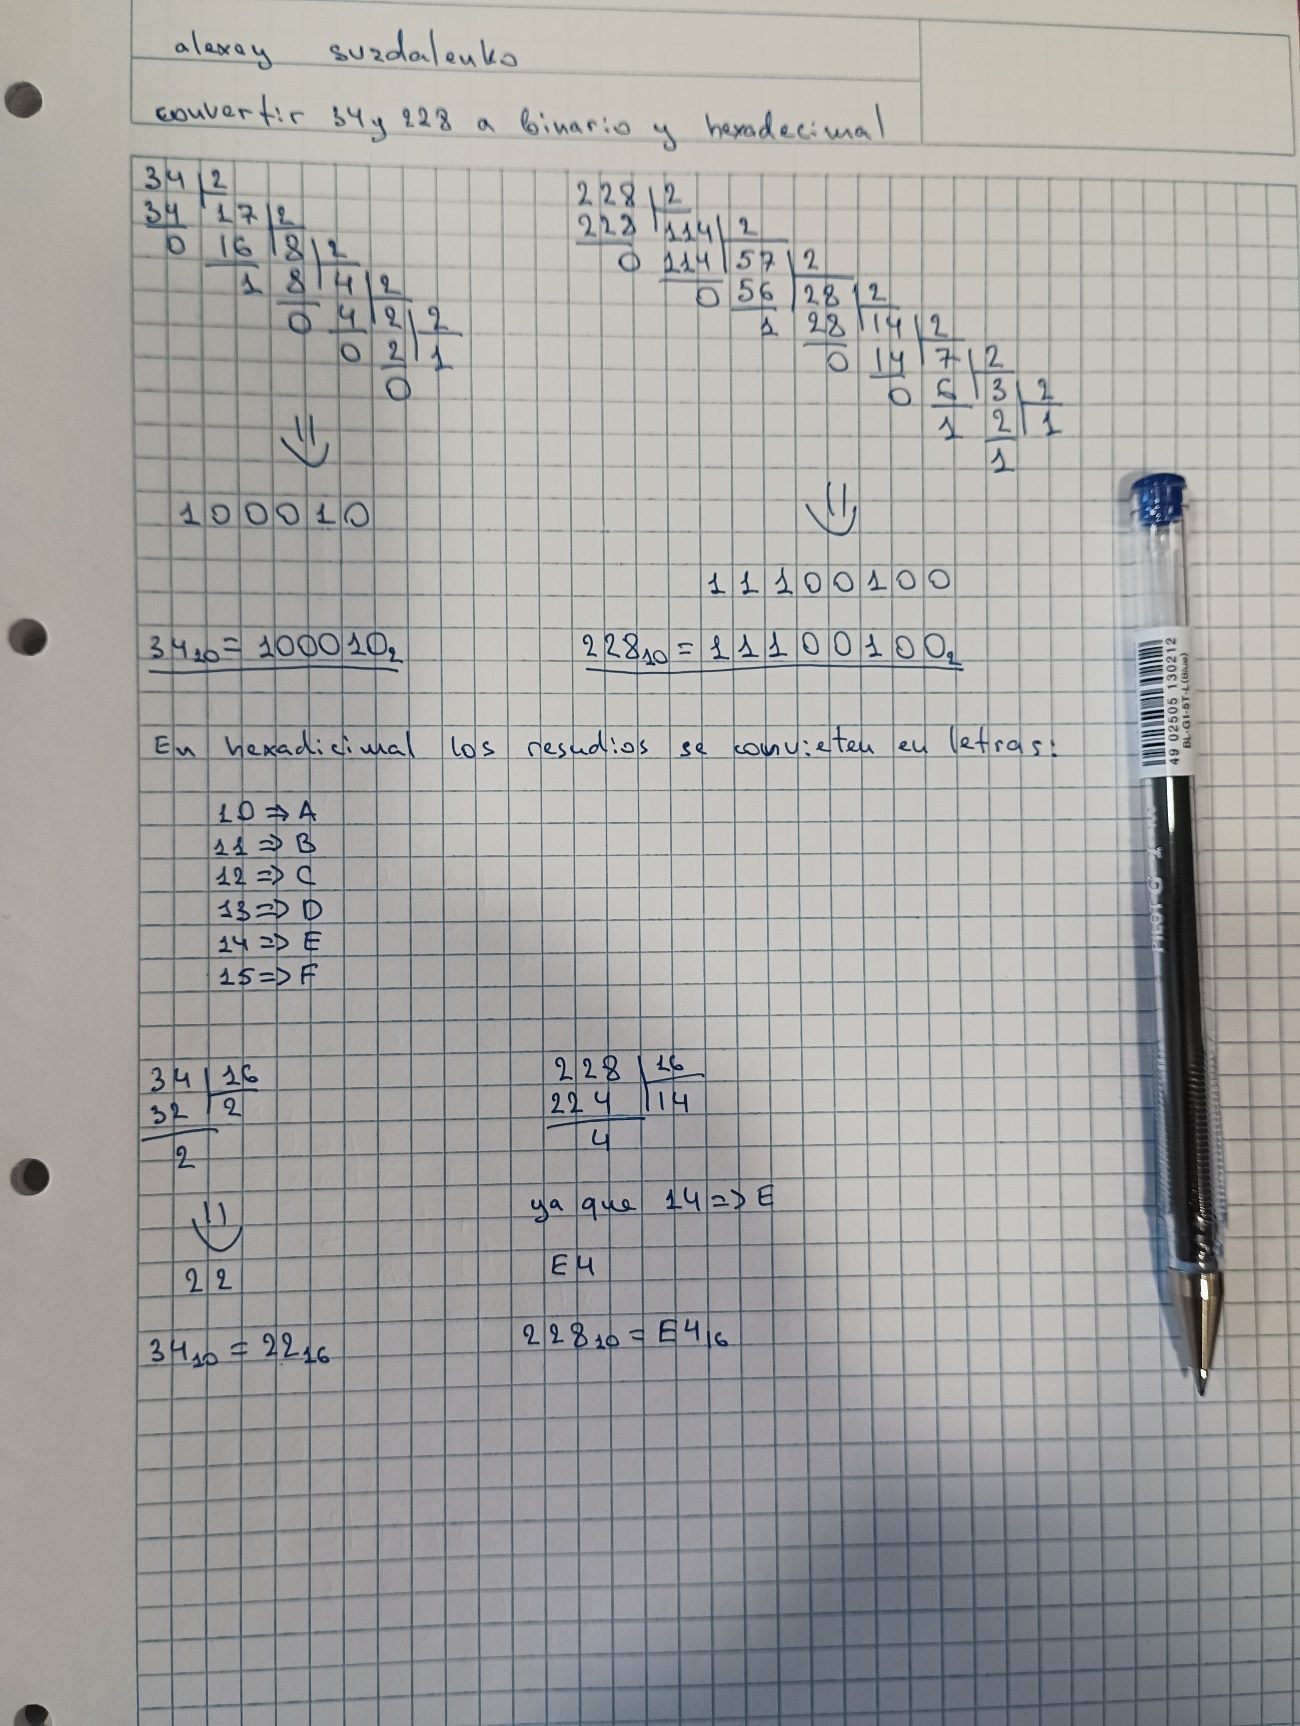 alexey suzdalenko
convertir 34 y 228 a binario y hexadecimal
34 2
34 17 2
0 16 8 2
1 8 4 2
0 4 2 2
0 2 1
0
100010
34₁₀ = 100010₂
228 2
228 114 2
0 114 57 2
0 56 28 2
1 28 14 2
0 14 7 2
0 6 3 2
1 2 1
1
11100100
228₁₀ = 11100100₂
En hexadicimal los resudios se convieten en letras:
10 => A
11 => B
12 => C
13 => D
14 => E
15 => F
34 16
32 2
2
22
34₁₀ = 22₁₆
228 16
224 14
4
ya que 14 => E
E4
228₁₀ = E4₁₆
49 02505 130212
BL-G1-5T-L(Blue)
PILOT G-1